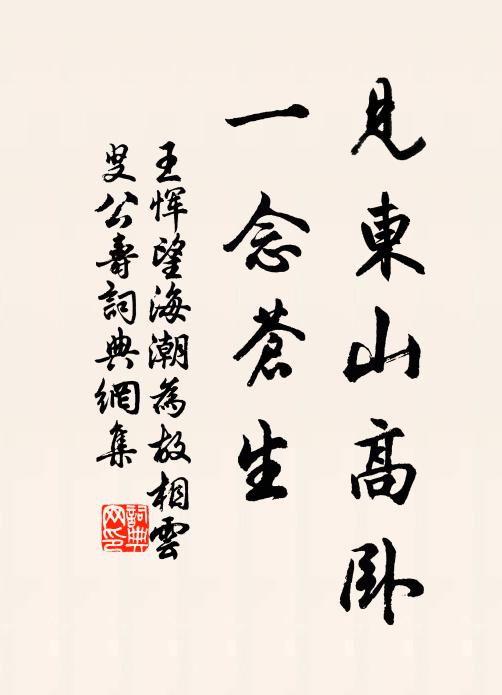 見東山高臥
一念蒼生
王惲望海潮為故相雲
叟公壽詞典網集
詞典网印